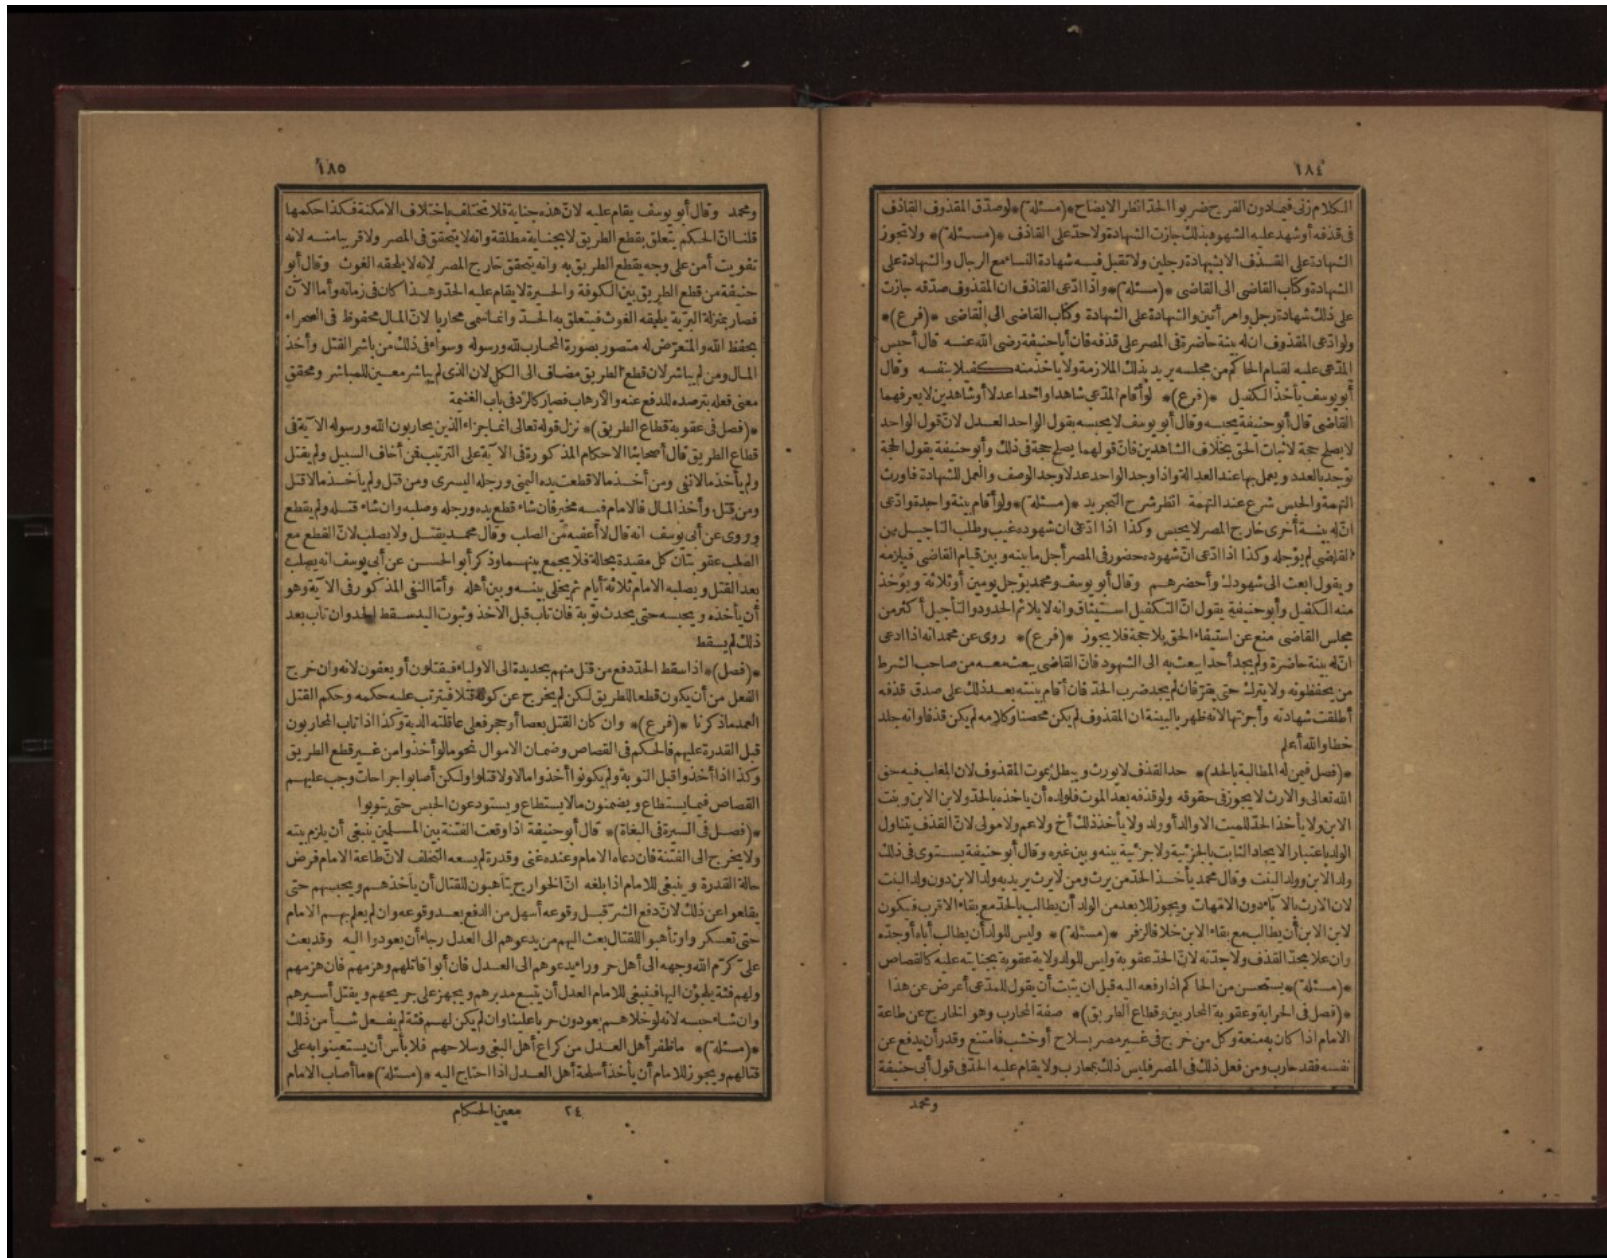 ١٨٤
الكلام زنى فيمادون الفرج ضربوا الحدّ انظر الايضاح *(مسئلة)* لوصدّق المقذوف القاذف
فى قذفه أوشهد عليه الشهود بذلك جازت الشهادة ولاحدّ على القاذف *(مسئلة)* ولا تجوز
الشهادة على القذف الابشهادة رجلين ولا تقبل فيه شهادة النساء مع الرجال والشهادة على
الشهادة وكتاب القاضى الى القاضى *(مسئلة)* واذا ادّعى القاذف ان المقذوف صدّقه جازت
على ذلك شهادة رجل وامرأتين والشهادة على الشهادة وكتاب القاضى الى القاضى *(فرع)*
ولو ادّعى المقذوف ان له بينة حاضرة فى المصر على قذفه فان أباحنيفة رضى الله عنه قال أحبس
المدّعى عليه لقيام الحاكم من مجلسه يريد بذلك الملازمة ولا ياخذ منه كفيلا بنفسه وقال
أبو يوسف يأخذ الكفيل *(فرع)* لو أقام المدّعى شاهدا واحدا عدلا أوشاهدين لا يعرفهما
القاضى قال أبوحنيفة يحبسه وقال أبو يوسف لا يحبسه بقول الواحد العدل لانّ قول الواحد
لا يصلح حجة لاثبات الحق بخلاف الشاهدين فانّ قولهما يصلح حجة فى ذلك وأبوحنيفة يقول الحجة
توجد بالعدد و يعمل بها عند العدالة واذا وجد الواحد عدلا وجد الوصف والعمل للشهادة فاورث
التهمة والحبس شرع عند التهمة انظر شرح التجريد *(مسئلة)* ولو أقام بينة واحدة وادّعى
انّ له بينة أخرى خارج المصر لا يحبس وكذا اذا ادّعى ان شهوده غيب وطلب التاجيل من
القاضى لم يؤجله وكذا اذا ادّعى انّ شهوده حضور فى المصر أجل ما بينه و بين قيام القاضى فيلزمه
و يقول ابعث الى شهودك وأحضرهم وقال أبو يوسف ومحمد يؤجل يومين أوثلاثة و يؤخذ
منه الكفيل وأبوحنيفة يقول انّ التكفيل استيثاق وانه لا يلائم الحدود والتأجيل أكثر من
مجلس القاضى منع عن استيفاء الحق بلا حجة فلا يجوز *(فرع)* روى عن محمد انه اذا ادعى
انّ له بينة حاضرة ولم يجد أحدا يبعث به الى الشهود فانّ القاضى يبعث معه من صاحب الشرط
من يحفظونه ولا يترك حتى يفرّ فان لم يجد ضرب الحدّ فان أقام بينته بعد ذلك على صدق قذفه
أطلقت شهادته وأجزتها لانه ظهر بالبينة ان المقذوف لم يكن محصنا وكلامه لم يكن قذفا وانه جلد
خطا والله أعلم
*(فصل فيمن له المطالبة بالحد)* حد القذف لا يورث و يبطل بموت المقذوف لان المغاب فيه حق
الله تعالى والارث لا يجوز فى حقوقه ولو قذفه بعد الموت فلولده أن ياخذه بالحد ولابن الابن وبنت
الابن ولا يأخذ الحدّ للميت الا والد أو ولد ولا يأخذ ذلك أخ ولا عم ولا مولى لانّ القذف يتناول
الولد باعتبار الايجاد الثابت بالجزئية ولا جزئية بينه و بين غيره وقال أبوحنيفة يستوى فى ذلك
ولد الابن وولد البنت وقال محمد يأخذ الحدّ من يرث ومن لا يرث يريد به ولد الابن دون ولد البنت
لان الارث بالآباء دون الامّهات ويجوز للابعد من الولد أن يطالب بالحدّ مع بقاء الاقرب فيكون
لابن الابن أن يطالب مع بقاء الابن خلافا لزفر *(مسئلة)* وليس للولد أن يطالب أباه أوجدّه
وان علا بحدّ القذف ولا جدّته لانّ الحدّ عقوبة وليس للولد ولاية عقوبة بجنايته عليه كالقصاص
*(مسئلة)* يستحسن من الحاكم اذا رفعه اليه قبل ان يثبت أن يقول للمدّعى أعرض عن هذا
*(فصل فى الحرابة وعقوبة المحاربين وقطاع الطريق)* صفة المحارب وهو الخارج عن طاعة
الامام اذا كان به منعة وكل من خرج فى غير مصر بسلاح أوخشب فامتنع وقدر أن يدفع عن
نفسه فقد حارب ومن فعل ذلك فى المصر فليس ذلك بمحارب ولا يقام عليه الحدّ فى قول أبى حنيفة
ومحمد
١٨٥
ومحمد وقال أبو يوسف يقام عليه لانّ هذه جناية فلا تختلف باختلاف الامكنة فكذا حكمها
قلنا انّ الحكم يتعلق بقطع الطريق لا بجناية مطلقة وانه لا يتحقق فى المصر ولا قريبا منه لانه
تفويت أمن على وجه يقطع الطريق به وانه يتحقق خارج المصر لانه لا يلحقه الغوث وقال أبو
حنيفة من قطع الطريق بين الكوفة والحيرة لا يقام عليه الحدّ وهذا كان فى زمانه وأما الآن
فصار بمنزلة البرّية يلحقه الغوث فيتعلق به الحدّ وانما سمى محاربا لانّ المال محفوظ فى الصحراء
بحفظ الله والمتعرّض له متصوّر بصورة المحارب لله ورسوله وسواء فى ذلك من باشر القتل وأخذ
المال ومن لم يباشر لان قطع الطريق مضاف الى الكل لان الذى لم يباشر معين للمباشر ومحقق
معنى فعله بترصده للدفع عنه والارهاب فصار كالردّ فى باب الغنيمة
*(فصل فى عقوبة قطاع الطريق)* نزل قوله تعالى انما جزاء الذين يحاربون الله ورسوله الآية فى
قطاع الطريق قال أصحابنا الاحكام المذكورة فى الآية على الترتيب فمن أخاف السبيل ولم يقتل
ولم يأخذ مالا نفى ومن أخذ مالا قطعت يده اليمنى ورجله اليسرى ومن قتل ولم يأخذ مالا قتل
ومن قتل وأخذ المال فالامام فيه مخير فان شاء قطع يده ورجله وصلبه وان شاء قتله ولم يقطع
وروى عن أبى يوسف انه قال لا أعفيه من الصلب وقال محمد يقتل ولا يصلب لانّ القطع مع
الصلب عقوبتان كل مقيدة بحالة فلا يجمع بينهما وذكر أبو الحسن عن أبى يوسف انه يصلب
بعد القتل و يصلبه الامام ثلاثة أيام ثم يخلى بينه و بين أهله وأمّا النفى المذكور فى الآية وهو
أن يأخذه و يحبسه حتى يحدث توبة فان تاب قبل الاخذ وثبوت اليد سقط الحد وان تاب بعد
ذلك لم يسقط
*(فصل)* اذا سقط الحدّ دفع من قتل منهم بحديدة الى الاولياء فيقتلون أو يعفون لانه وان خرج
الفعل من أن يكون قطعا للطريق لكن لم يخرج عن كونه قتلا فيترتب عليه حكمه وحكم القتل
العمد ما ذكرنا *(فرع)* وان كان القتل بعصا أوحجر فعلى عاقلته الدية وكذا اذا تاب المحاربون
قبل القدرة عليهم فالحكم فى القصاص وضمان الاموال نحو ما لو أخذوا من غير قطع الطريق
وكذا اذا أخذوا قبل التوبة ولم يكونوا أخذوا مالا ولا قتلوا ولكن أصابوا جراحات وجب عليهم
القصاص فيما يستطاع و يضمنون ما لا يستطاع و يستودعون الحبس حتى يتوبوا
*(فصل فى السيرة فى البغاة)* قال أبوحنيفة اذا وقعت الفتنة بين المسلمين ينبغى أن يلزم بيته
ولا يخرج الى الفتنة فان دعاه الامام وعنده غنى وقدرة لم يسعه التخلف لانّ طاعة الامام فرض
حالة القدرة و ينبغى للامام اذا بلغه انّ الخوارج يتأهبون للقتال أن يأخذهم و يحبسهم حتى
يقلعوا عن ذلك لانّ دفع الشرّ قبل وقوعه أسهل من الدفع بعد وقوعه وان لم يعلم بهم الامام
حتى تعسكروا وتأهبوا للقتال بعث اليهم من يدعوهم الى العدل رجاء أن يعودوا اليه وقد بعث
علىّ كرّم الله وجهه الى أهل حروراء يدعوهم الى العدل فان أبوا قاتلهم وهزمهم فان هزمهم
ولهم فئة يلجؤن اليها فينبغى للامام العدل أن يتبع مدبرهم و يجهز على جريحهم و يقتل أسيرهم
وان شاء حبسه لانه لو خلاهم يعودون حربا علينا وان لم يكن لهم فئة لم يفعل شيأ من ذلك
*(مسئلة)* ما ظفر أهل العدل من كراع أهل البغى وسلاحهم فلا بأس أن يستعينوا به على
قتالهم و يجوز للامام أن يأخذ أسلحة أهل العدل اذا احتاج اليه *(مسئلة)* ما أصاب الامام
٢٤ معين الحكام